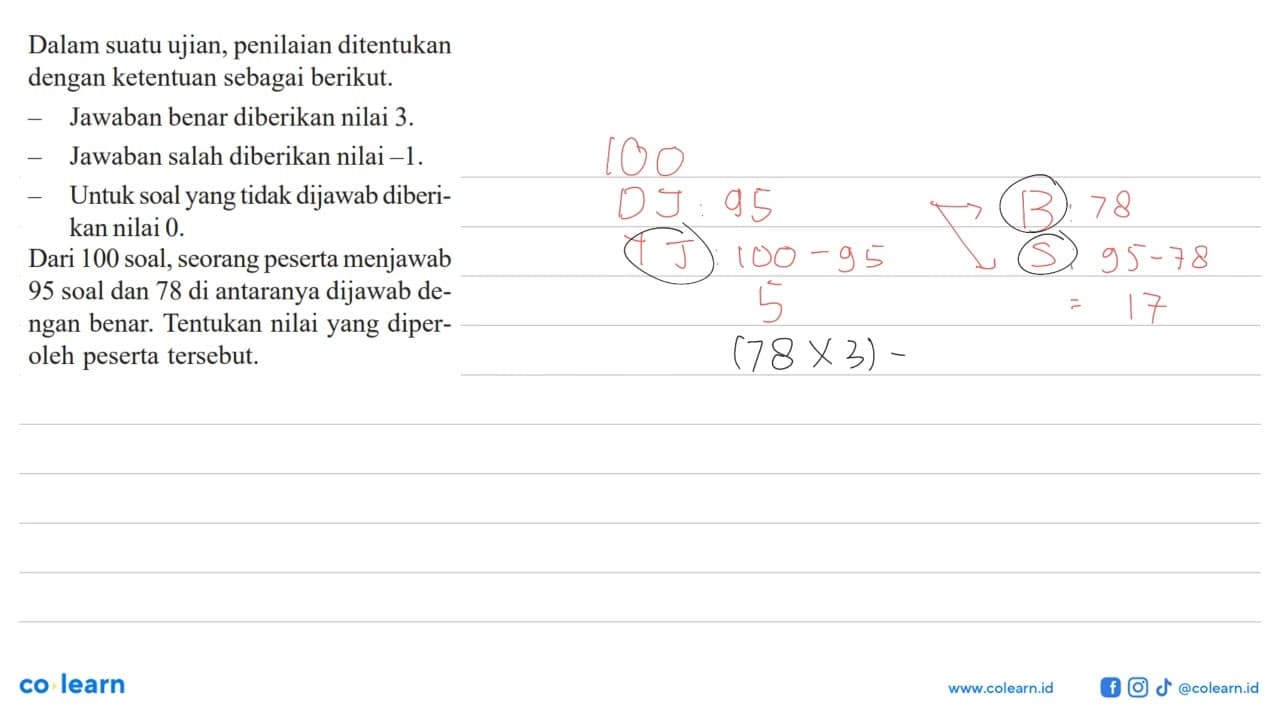 Dalam suatu ujian, penilaian ditentukan
dengan ketentuan sebagai berikut.
– Jawaban benar diberikan nilai 3.
– Jawaban salah diberikan nilai –1.
– Untuk soal yang tidak dijawab diberi-
kan nilai 0.
Dari 100 soal, seorang peserta menjawab
95 soal dan 78 di antaranya dijawab de-
ngan benar. Tentukan nilai yang diper-
oleh peserta tersebut.
100
DJ : 95
TJ : 100 - 95
5
B : 78
S : 95 - 78
= 17
(78 X 3) -
co learn
www.colearn.id
@colearn.id